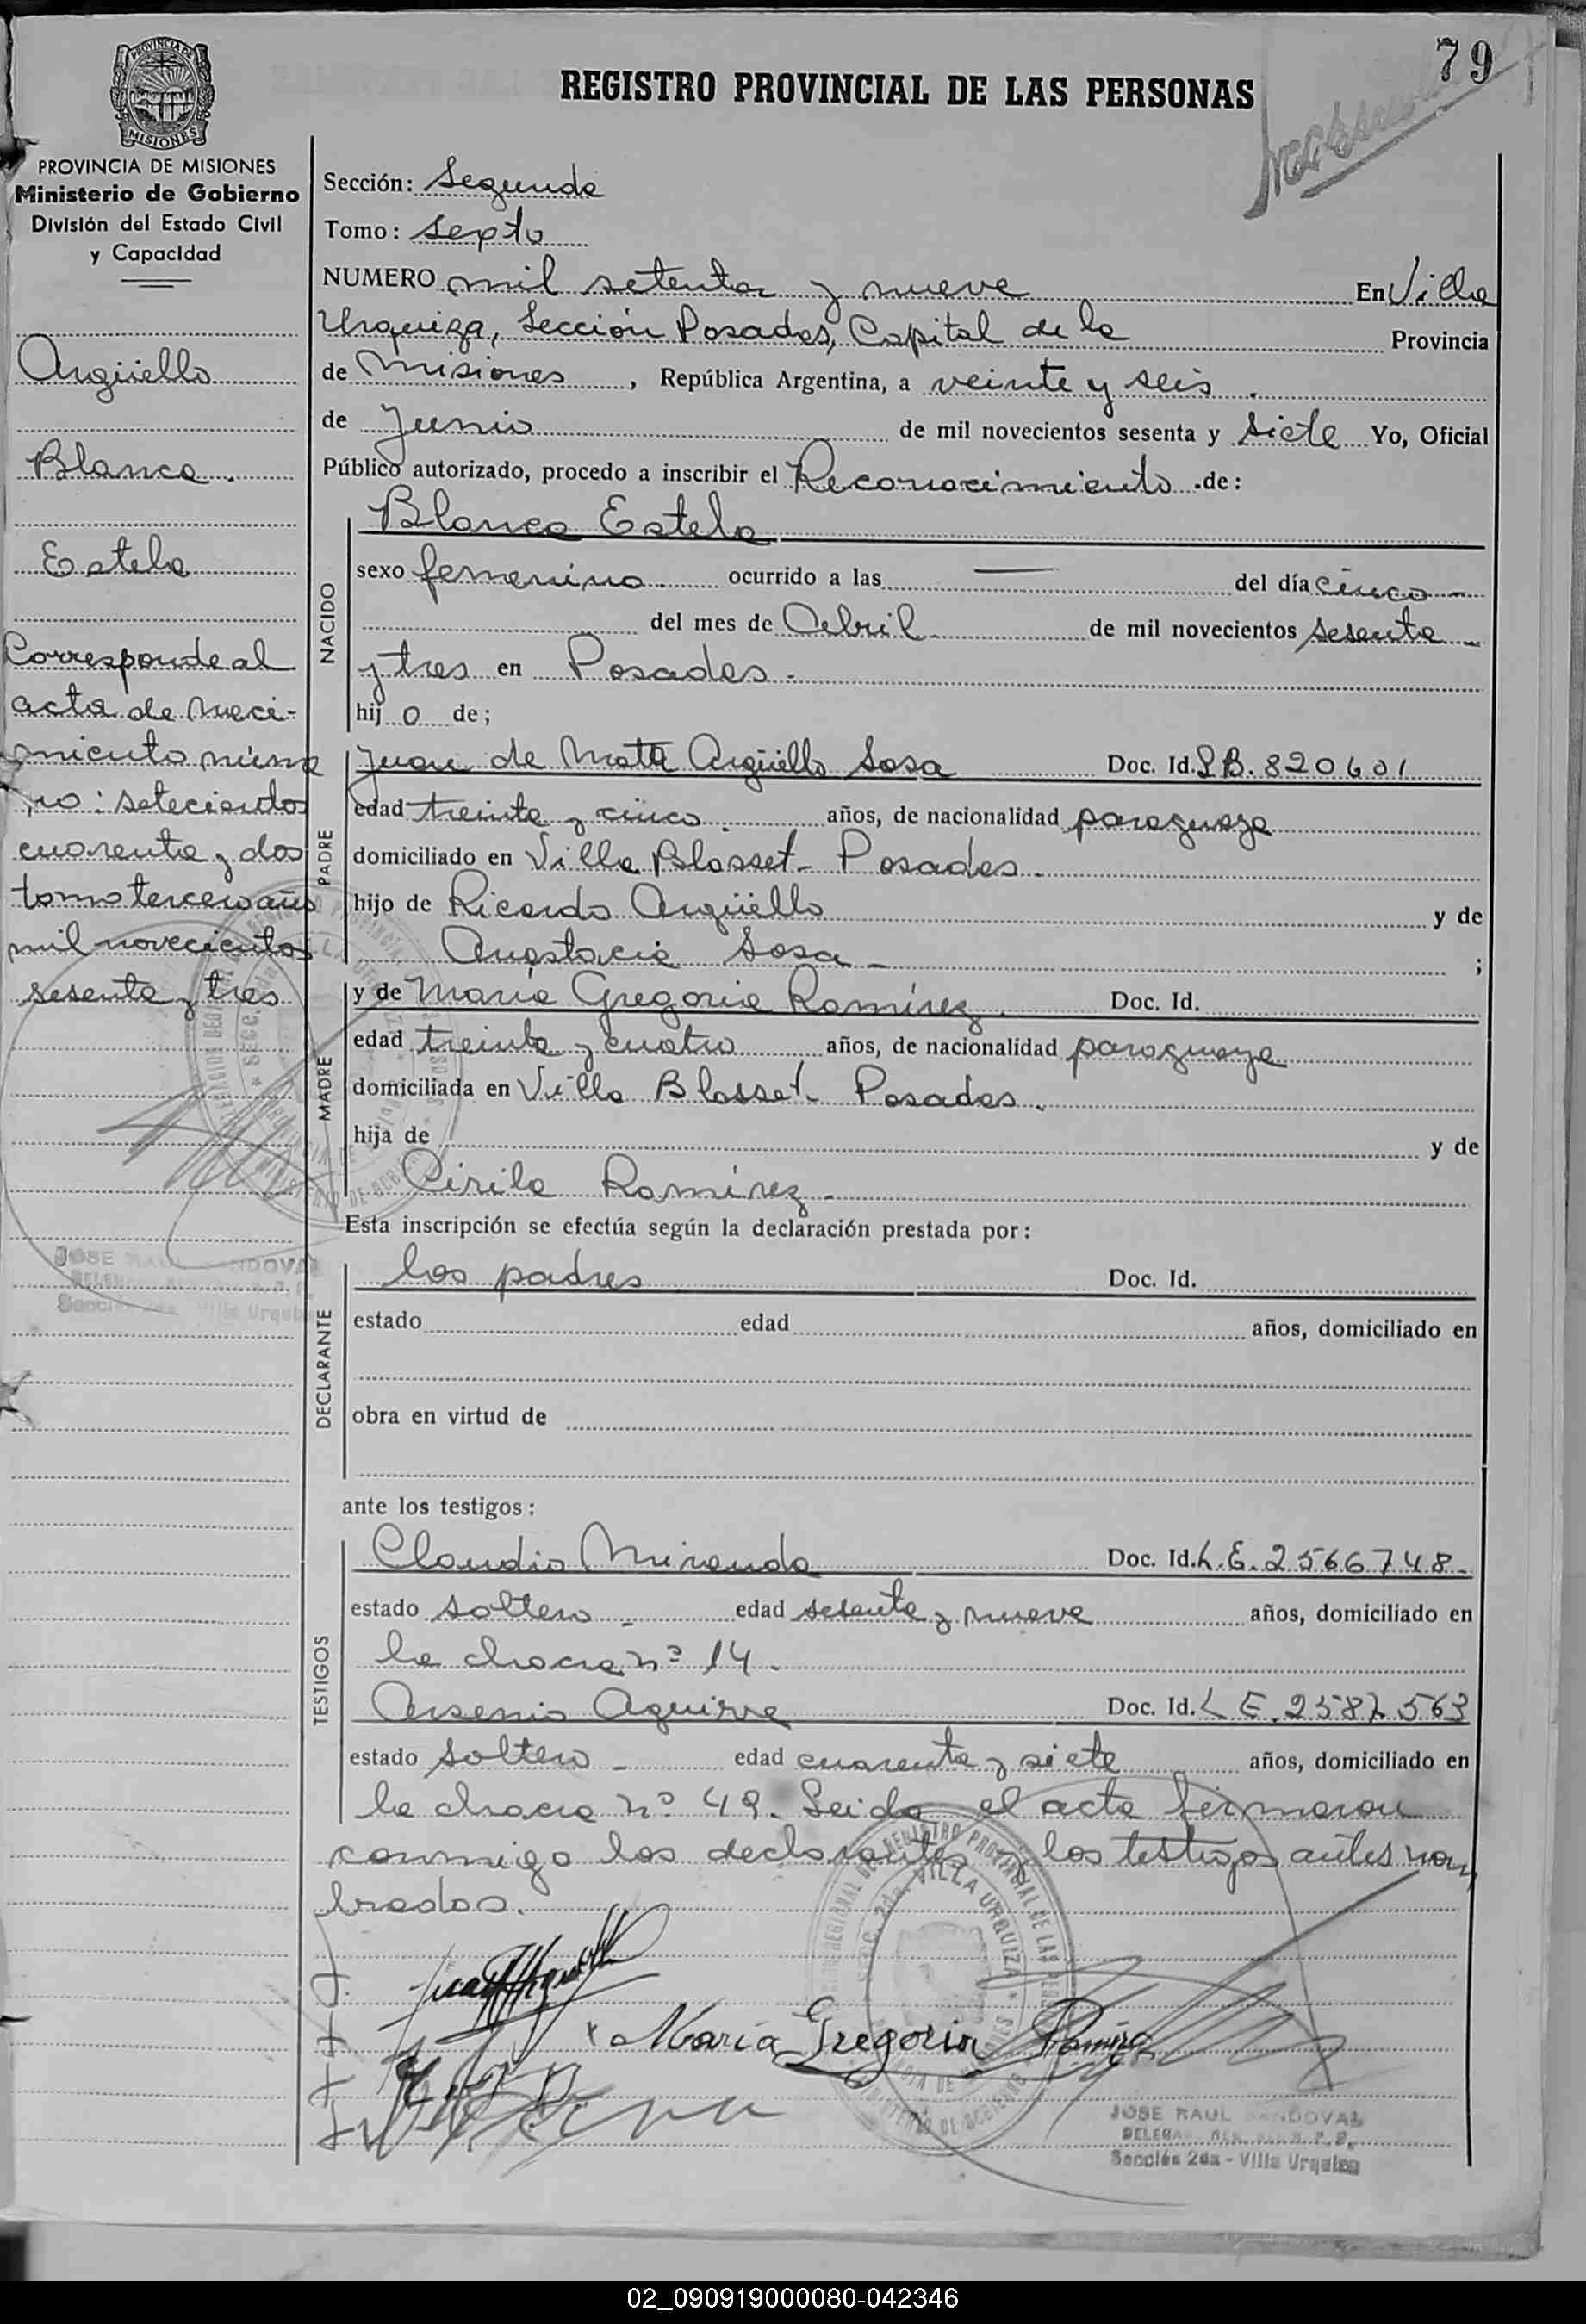 79
REGISTRO PROVINCIAL DE LAS PERSONAS
PROVINCIA DE MISIONES
MISIONES
PROVINCIA DE MISIONES
Ministerio de Gobierno
División del Estado Civil
y Capacidad
Argüello
Blanca.
Estela
Corresponde al
acta de naci-
miento núme
ro: setecientos
cuarenta y dos
tomo tercero año
mil novecientos
sesenta y tres
JOSE RAUL SANDOVAL
Sección 2da Villa Urquiza
Sección: Segunda
Tomo: Sexto
NUMERO mil setenta y nueve En Villa
Urquiza, Sección Posadas, Capital de la Provincia
de Misiones, República Argentina, a veinte y seis.
de Junio de mil novecientos sesenta y siete Yo, Oficial
Público autorizado, procedo a inscribir el Reconocimiento de:
NACIDO
Blanca Estela
sexo femenino. ocurrido a las — del día cinco -
del mes de Abril de mil novecientos sesenta -
y tres en Posadas.
hijo de;
PADRE
Juan de Mata Argüello Sosa Doc. Id. LB. 820601
edad treinta y cinco. años, de nacionalidad paraguaya
domiciliado en Villa Blosset - Posadas.
hijo de Ricardo Argüello y de
Anastacia Sosa - ;
MADRE
y de María Gregoria Ramírez. Doc. Id.
edad treinta y cuatro años, de nacionalidad paraguaya
domiciliada en Villa Blosset - Posadas.
hija de y de
Cirila Ramírez.
Esta inscripción se efectúa según la declaración prestada por:
DECLARANTE
los padres Doc. Id.
estado edad años, domiciliado en
obra en virtud de
ante los testigos:
TESTIGOS
Claudio Miranda Doc. Id. L.E. 2566748.
estado soltero - edad sesenta y nueve años, domiciliado en
la chacra nº 14.
Arsenio Aguirre Doc. Id. L E. 2587.563
estado soltero - edad cuarenta y siete años, domiciliado en
la chacra nº 49. Leida el acta firmaron
conmigo los declarantes y los testigos antes nom
brados.
x María Gregoria Ramírez
JOSE RAUL SANDOVAL
Sección 2da - Villa Urquiza
02_090919000080-042346